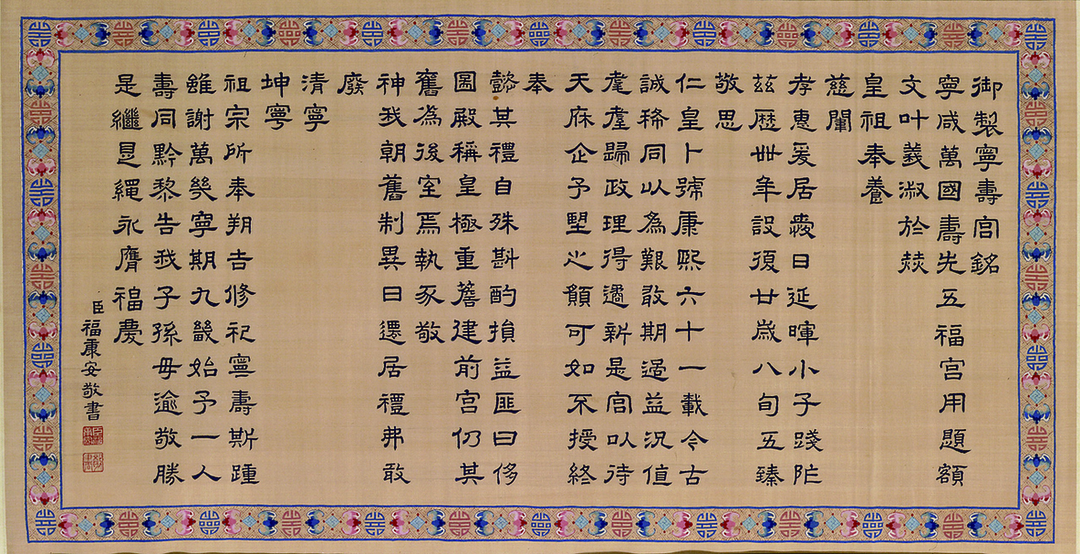 御製寧壽宮銘
寧咸萬國壽先五福宮用題額
文叶義淑於赫
皇祖奉養
慈闈
孝惠爰居愛日延暉小子踐阼
茲歷卅年設復廿歲八旬五臻
敬思
仁皇卜號康熙六十一載今古
誠稀同以為艱敢期過益況值
耄耋歸政理得遹新是宮以待
天庥企予堅心願可如不授終
奉
懿其禮自殊斟酌損益匪曰侈
圖殿稱皇極重簷建前宮仍其
舊為後室焉執豕敬
神我朝舊制異日還居禮弗敢
廢
清寧
坤寧
祖宗所奉朔吉修祀寧壽斯踵
雖謝萬幾寧期九齡始予一人
壽同黔黎告我子孫毋逾敬勝
是繼是繩永膺福慶
臣福康安敬書